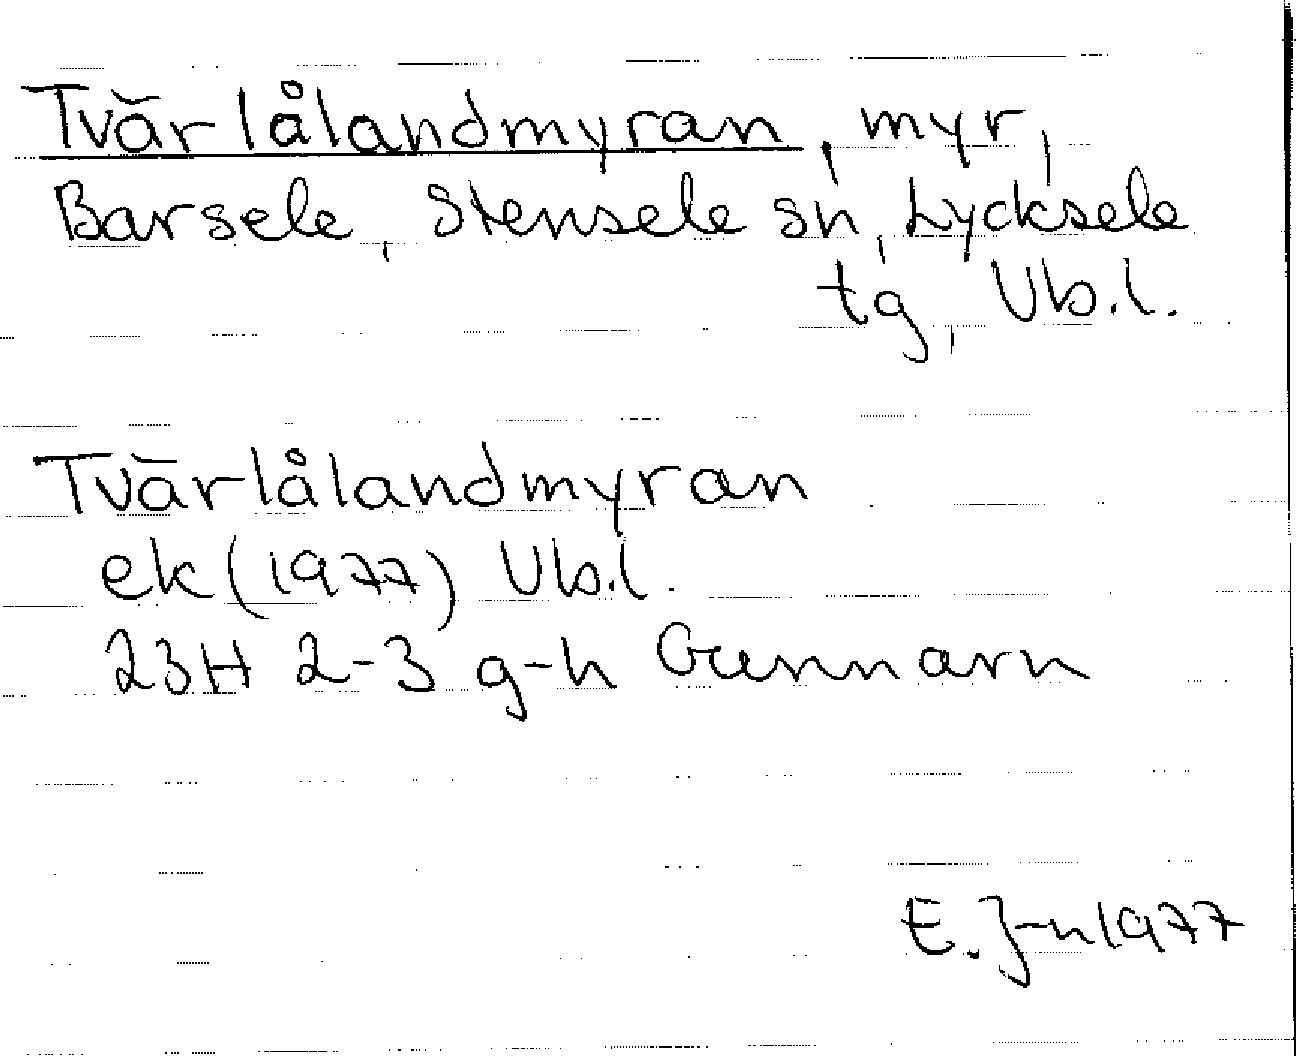 Tvärlålandmyran, myr,
Barsele, Stensele sn, Lycksele
tg, Vb.l.
Tvärlålandmyran
ek (1977) Vb.l.
23H 2-3 g-h Gunnarn
E. J-n 1977